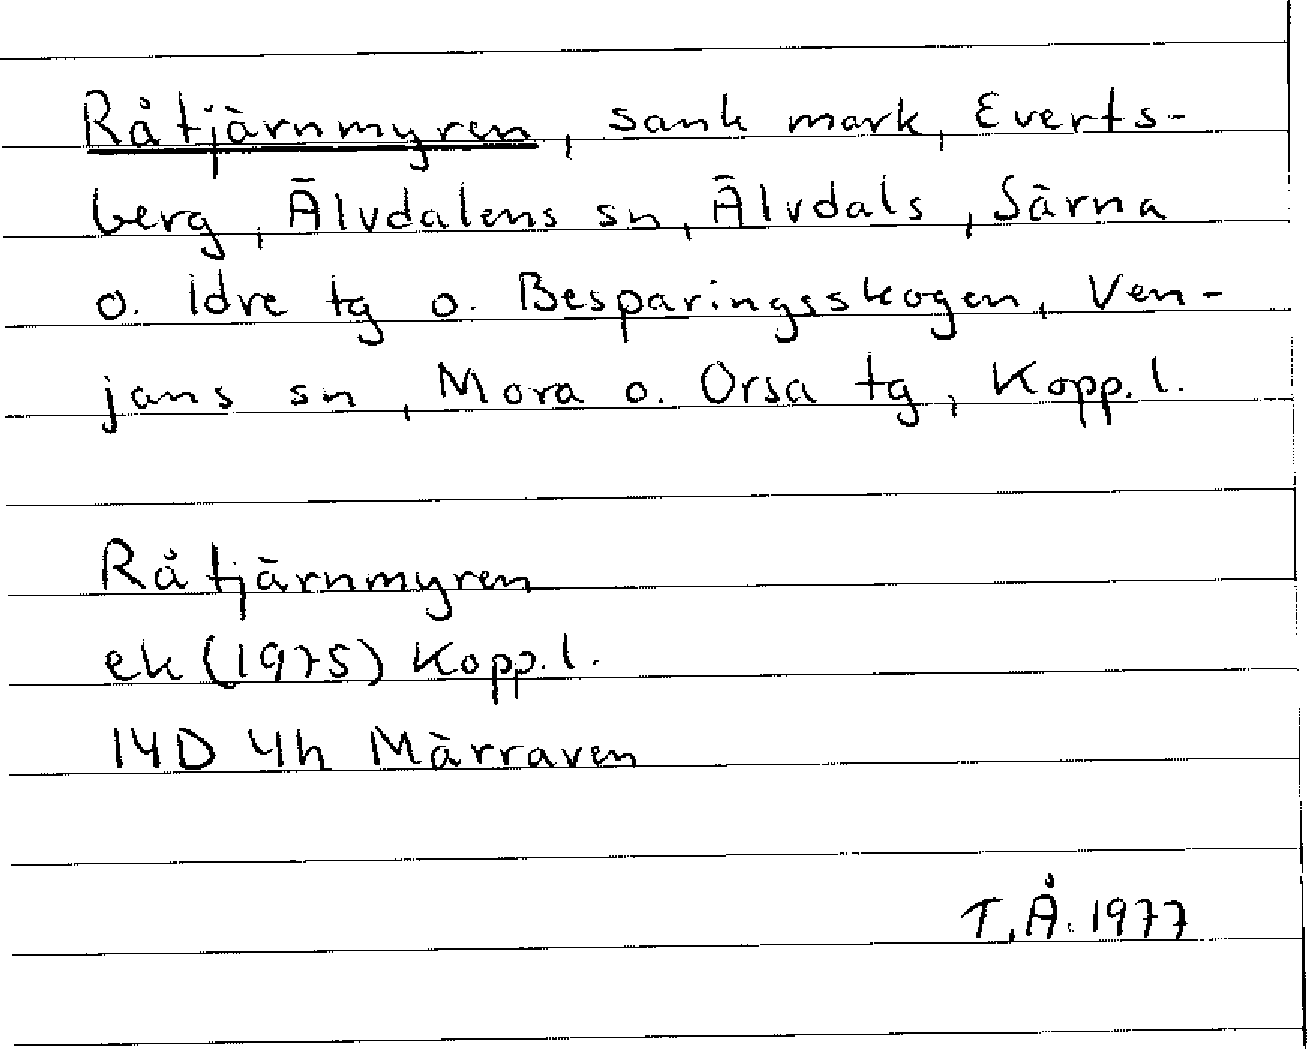 Råtjärnmyren, sank mark, Everts-
berg, Älvdalens sn, Älvdals, Särna
o. Idre tg o. Besparingsskogen, Ven-
jans sn, Mora o. Orsa tg, Kopp.l.
Råtjärnmyren
ek (1975) Kopp.l.
14D 4h Märraven
T.Å. 1977